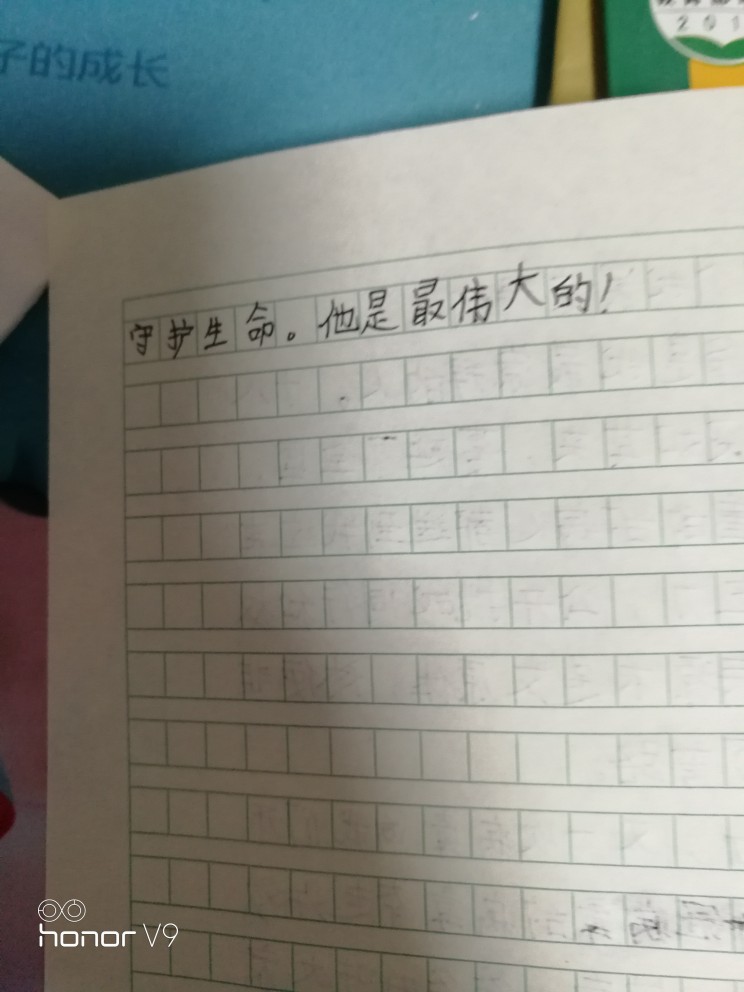 子的成长
201
守护生命。他是最伟大的!
honor V9